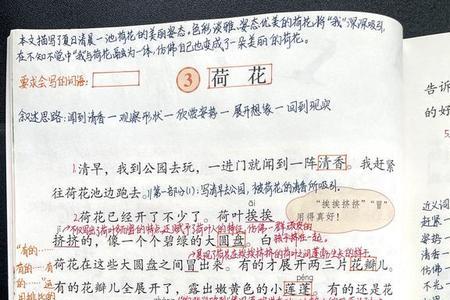 本文描写了夏日清晨一池荷花的美丽姿态，色彩淡雅、姿态优美的荷花，将“我”深深吸引，
在不知不觉中“我”与荷花融为一体，仿佛自己也变成了一朵美丽的荷花。
要求会写的词语：
3 荷花
叙述思路：闻到清香—观察形状—欣赏姿势—展开想象—回到现实
1.清早，我到公园去玩，一进门就闻到一阵清香。我赶紧
往荷花池边跑去。//第一部分(1)：写清早去公园，被荷花的清香所吸引。
āi
“挨挨挤挤”“冒”
用得真好！
2.荷花已经开了不少了。荷叶挨挨
挤挤的，像一个个碧绿的大圆盘。白
荷花在这些大圆盘之间冒出来。有的才展开两三片花瓣儿。
péng
有的花瓣儿全展开了，露出嫩黄色的小莲蓬。有的还是花
“有的……
有的……
告诉
的好